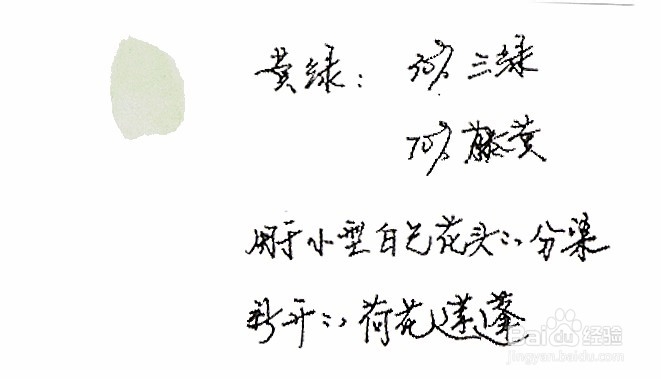 黄绿: 30% 三绿
70% 藤黄
用于小型白色花头之分染
新开之荷花莲蓬
Baidu 经验
jingyan.baidu.com